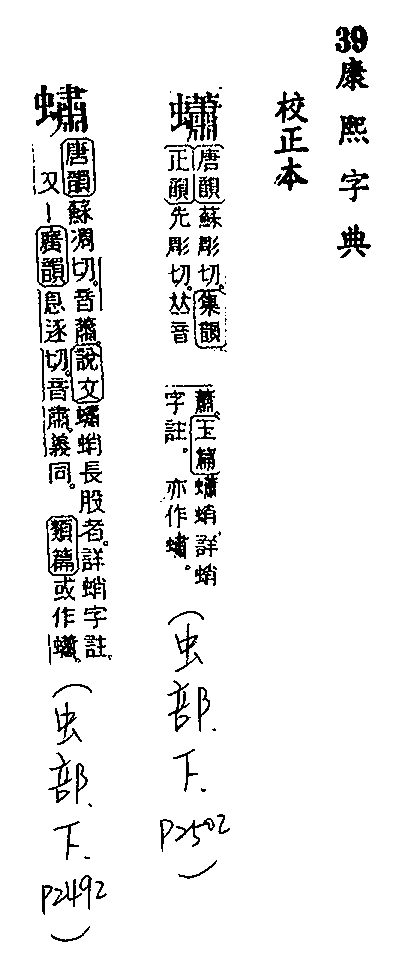 39康熙字典
校正本
蠨
唐韻蘇彫切。集韻
正韻先彫切。𠀤音
蕭。玉篇蠨蛸。詳蛸
字註。亦作蟰。
(虫部.下.P2502)
蟰
唐韻蘇凋切。音蕭。說文蟰蛸長股者。詳蛸字註。
又｜廣韻息逐切。音肅。義同。類篇或作蠨。
(虫部.下.P2492)